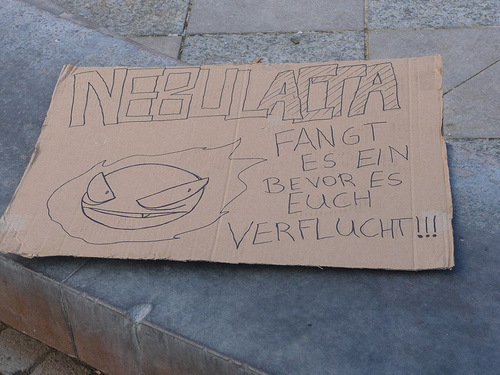 NEBULACTA
FANGT
ES EIN
BEVOR ES
EUCH
VERFLUCHT!!!